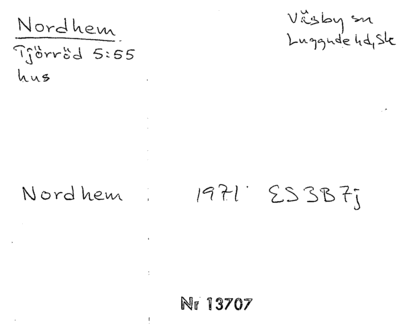 Nordhem
Tjörröd 5:55
hus
Väsby sn
Luggude hd, Sk
Nordhem 1971 ES3B7j
Nr 13707